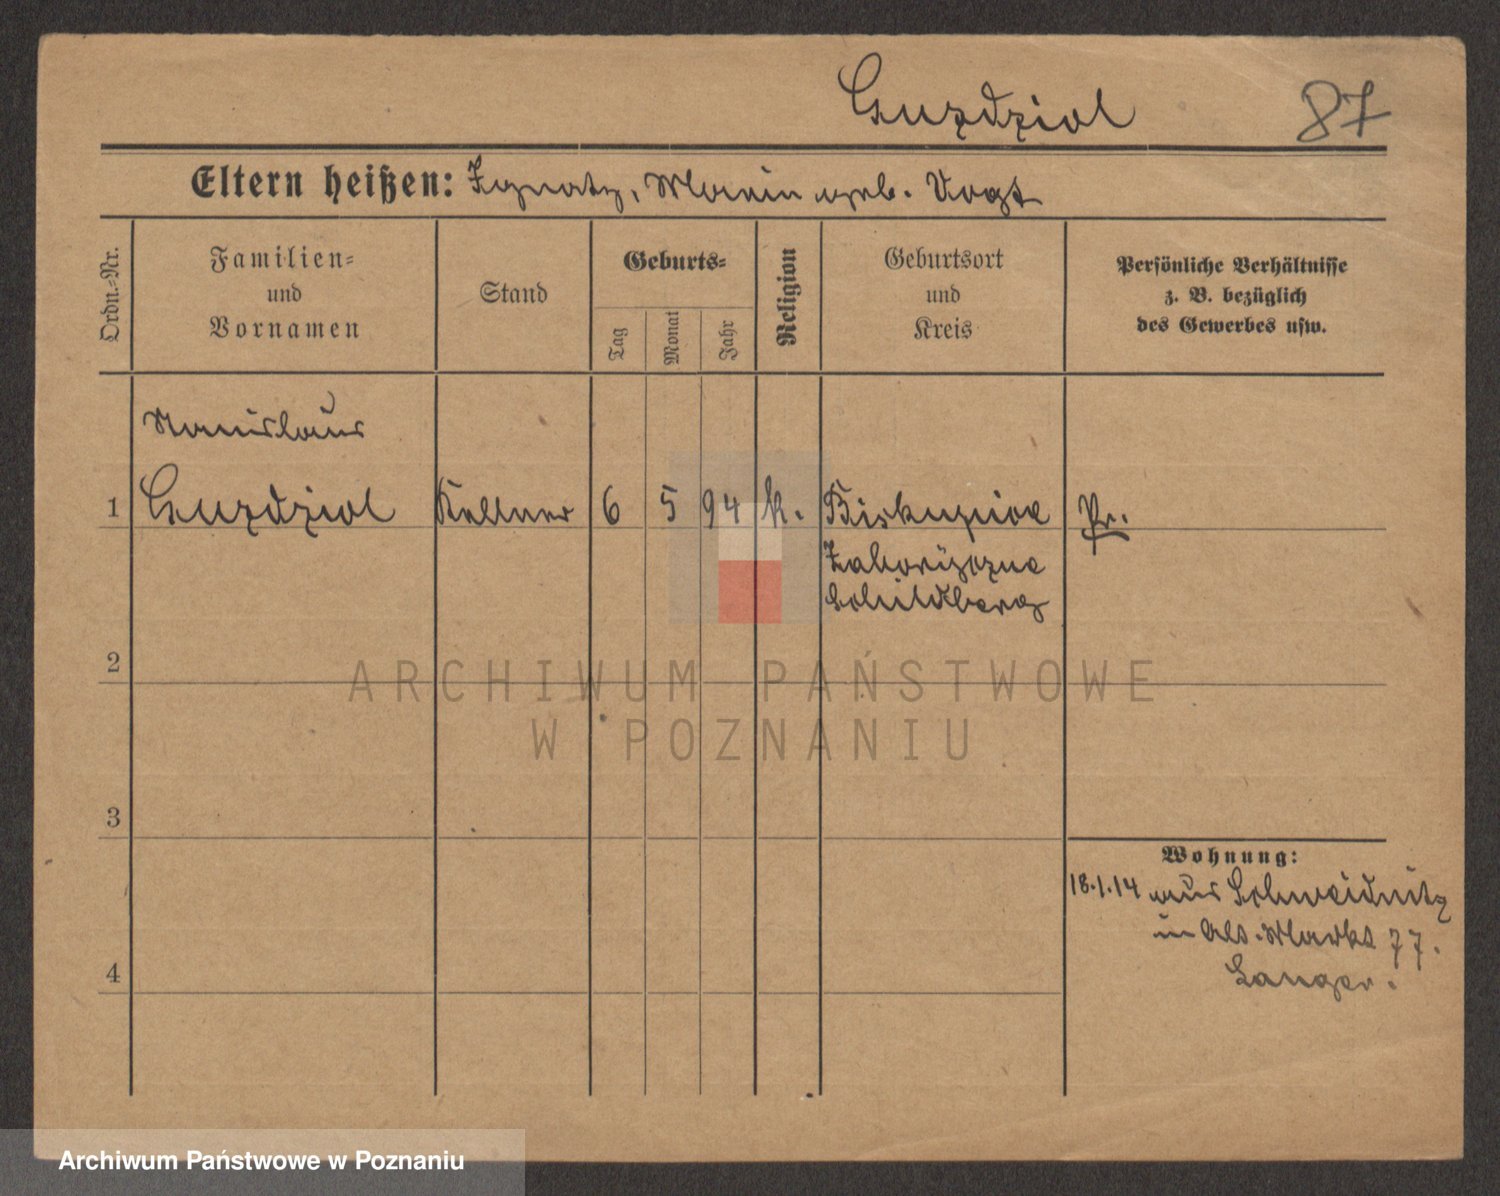 Guzdziol 87
Eltern heißen: Ignatz, Maria geb. Vogt
Ordn.=Nr.
Familien=
und
Vornamen
Stand
Geburts=
Tag
Monat
Jahr
Religion
Geburtsort
und
Kreis
Persönliche Verhältnisse
z. B. bezüglich
des Gewerbes usw.
Stanislaus
1 Guzdziol Kellner 6 5 94 k. Biskupice Pr.
Zaboryczne
Schildberg
2
3
4
Wohnung:
18.1.14 aus Schweidnitz
in Alt. Markt 77.
Langer.
ARCHIWUM PAŃSTWOWE
W POZNANIU
Archiwum Państwowe w Poznaniu